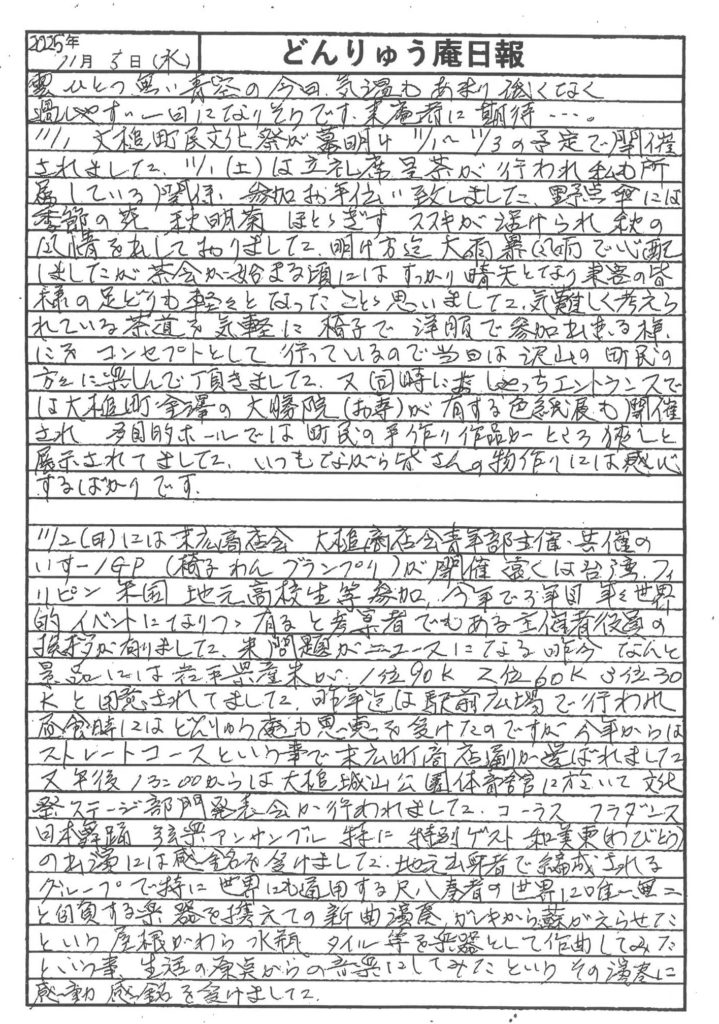 2025年
11月 5日(水)
どんりゅう庵日報
雲ひとつ無い青空の今日、気温もあまり低くなく
過しやすい一日になりそうです。来庵者に期待・・・。
11/1 大槌町民文化祭が幕明け 11/1〜11/3の予定で開催
されました。11/1(土)は立礼席呈茶が行われ私も所
属している関係 参加お手伝い致しました。野点傘には
季節の花 秋明菊 ほととぎす ススキが活けられ秋の
風情を出しておりました。明け方迄 大雨暴風雨で心配
しましたが茶会が始まる頃にはすっかり晴天となり来客の皆
様の足どりも軽々となったことと思いました。気難しく考えら
れている茶道を気軽に椅子で 洋服で参加出きる様
にを コンセプトとして 行っているので当日は沢山の町民の
方々に楽しんで頂きました。又同時に おしゃっちエントランスで
は大槌町金澤の大勝院(お寺)が有する色紙展も開催
され 多目的ホールでは町民の手作り作品が ところ狭しと
展示されてました。いつもながら皆さんの物作りには感心
するばかりです。
11/2(日)には末広商店会 大槌商店会青年部主催・共催の
いす-1GP(椅子わんグランプリ)が開催 遠くは台湾、フィ
リピン 米国 地元高校生等参加、今年で3年目 年々世界
的イベントになりつつ有ると考案者でもある主催者役員の
挨拶が有りました。米問題がニュースになる昨今 なんと
景品には岩手県産米が、1位90K 2位60K 3位30
Kと用意されてました。昨年迄は駅前広場で行われ
昼食時にはどんりゅう庵も恩恵を受けたのですが今年からは
ストレートコースという事で末広町商店通りが選ばれました
又午後13:00からは大槌城山公園体育館に於いて文化
祭ステージ部門発表会が行われました。コーラス フラダンス
日本舞踊 弦楽アンサンブル 特に特別ゲスト和美東(わびとう)
の出演には感銘を受けました。地元出身者で編成される
グループで特に世界にも通用する尺八奏者の世界に唯一無二
と自負する楽器を携えての新曲演奏 ガレキから蘇がえらせた
という屋根がわら 水瓶 タイル等を楽器として作曲してみた
という事、生活の原点からの音楽にしてみたという その演奏に
感動 感銘を受けました。